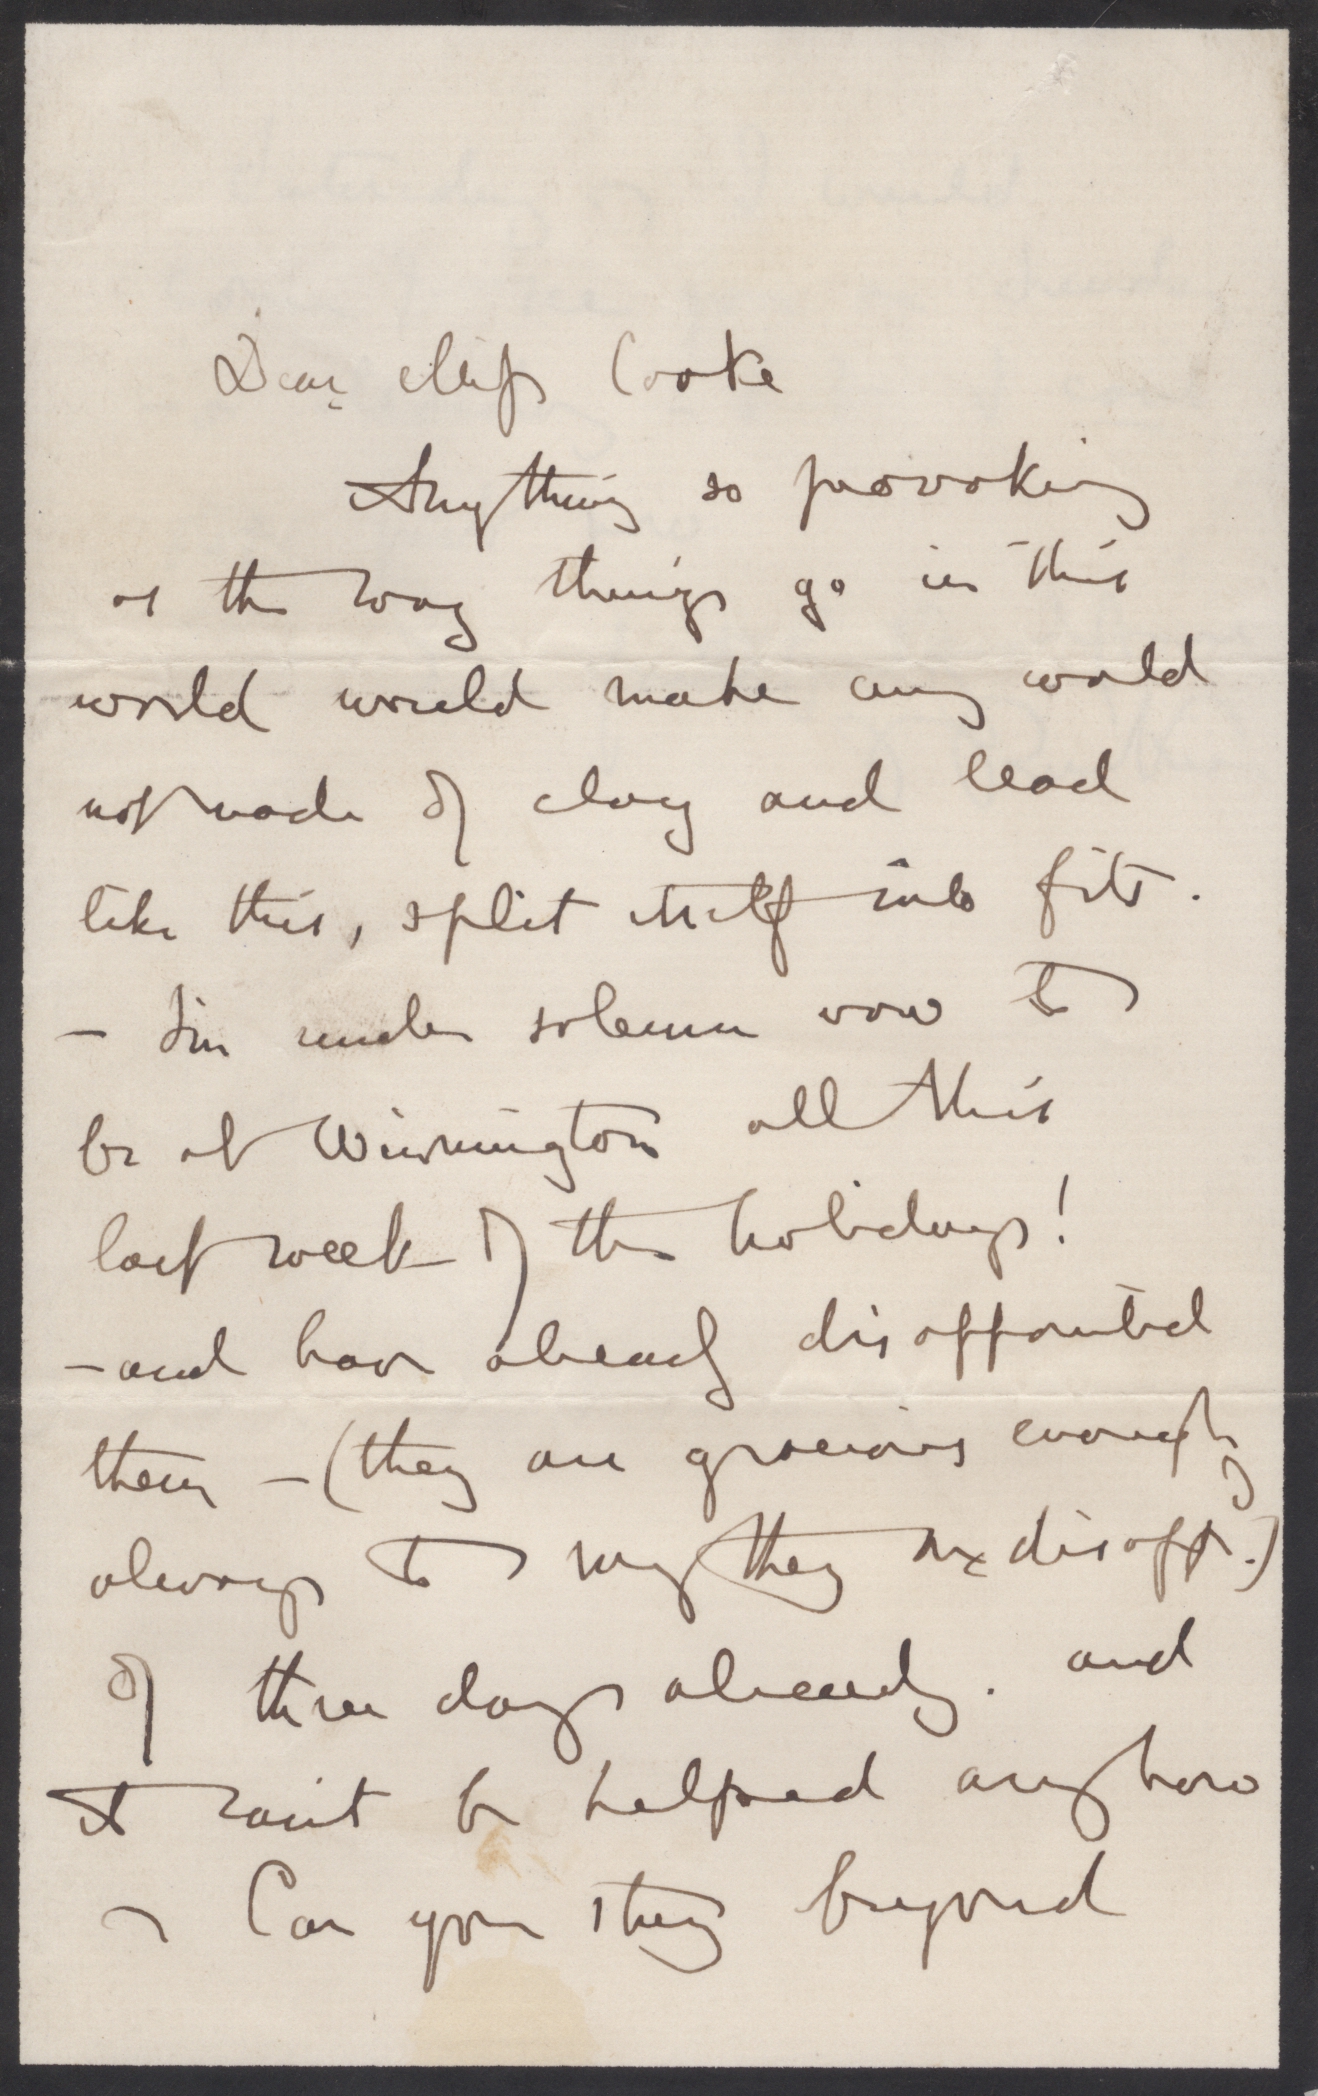 Dear Miss Cooke
Anything so provoking
as the way things go in this
world would make any world
not made of clay and lead
like this, split itself into fits.
— I'm under solemn vow to
be at Winnington all this
last week of the holidays!
— and have already disappointed
them — (they are gracious enough
always to say they are disappt.)
of three days already. and
it can't be helped anyhow
— Can you stay beyond